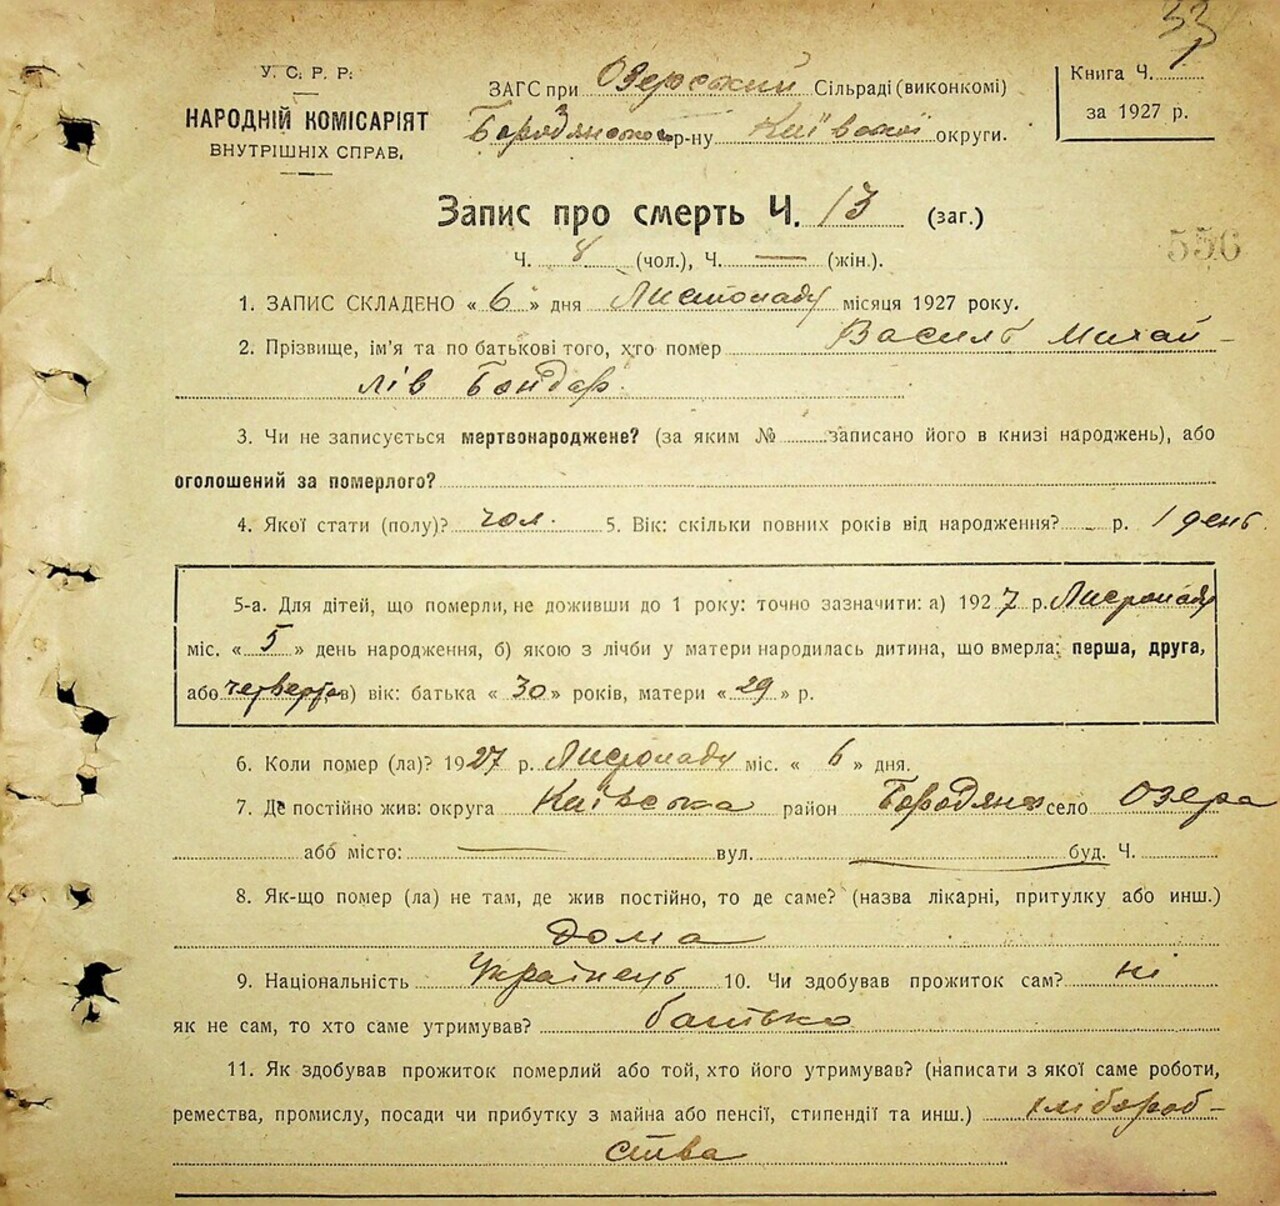 33
У. С. Р. Р.
НАРОДНІЙ КОМІСАРІЯТ
ВНУТРІШНІХ СПРАВ.
ЗАГС при Озерський Сільраді (виконкомі)
Бородянсько р-ну Київської округи.
Книга Ч. 1
за 1927 р.
Запис про смерть Ч. 13 (заг.)
Ч. 8 (чол.), Ч. — (жін.).
556
1. ЗАПИС СКЛАДЕНО « 6 » дня Листопаду місяця 1927 року.
2. Прізвище, ім'я та по батькові того, хто помер Василь Михай-
лів Бондар.
3. Чи не записується мертвонароджене? (за яким № записано його в книзі народжень), або
оголошений за померлого?
4. Якої стати (полу)? чол. 5. Вік: скільки повних років від народження? р. 1 день.
5-а. Для дітей, що померли, не доживши до 1 року: точно зазначити: а) 1927 р. Листопаду
міс. « 5 » день народження, б) якою з лічби у матери народилась дитина, що вмерла: перша, друга,
або четверта, в) вік: батька « 30 » років, матери « 29 » р.
6. Коли помер (ла)? 1927 р. Листопаду міс. « 6 » дня.
7. Де постійно жив: округа Київська район Бородянс село Озера
або місто: — вул. — буд. Ч.
8. Як-що помер (ла) не там, де жив постійно, то де саме? (назва лікарні, притулку або инш.)
дома
9. Національність Українець 10. Чи здобував прожиток сам? ні
як не сам, то хто саме утримував? батько
11. Як здобував прожиток померлий або той, хто його утримував? (написати з якої саме роботи,
ремества, промислу, посади чи прибутку з майна або пенсії, стипендії та инш.) хлібороб-
ства